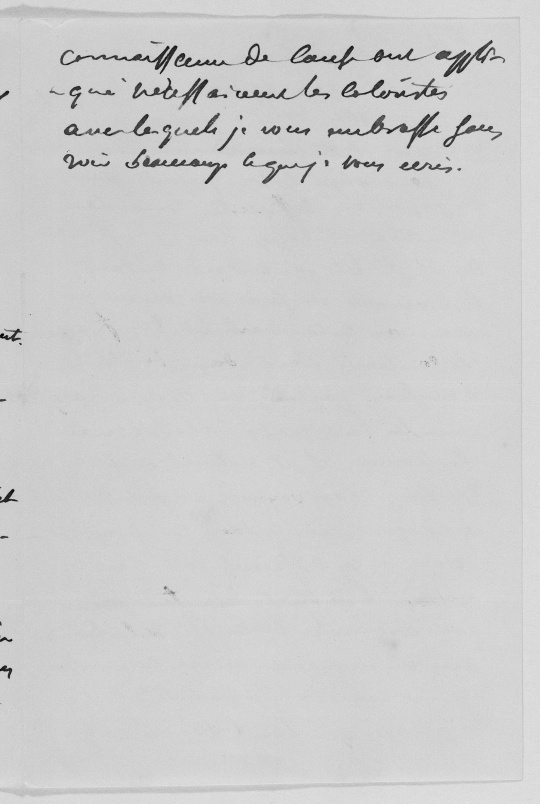 connaissance de cause ont appli-
-qué nécessairement les coloristes
avec lesquels je vous embrasse sans
voir beaucoup ce que je vous écris.
ut.